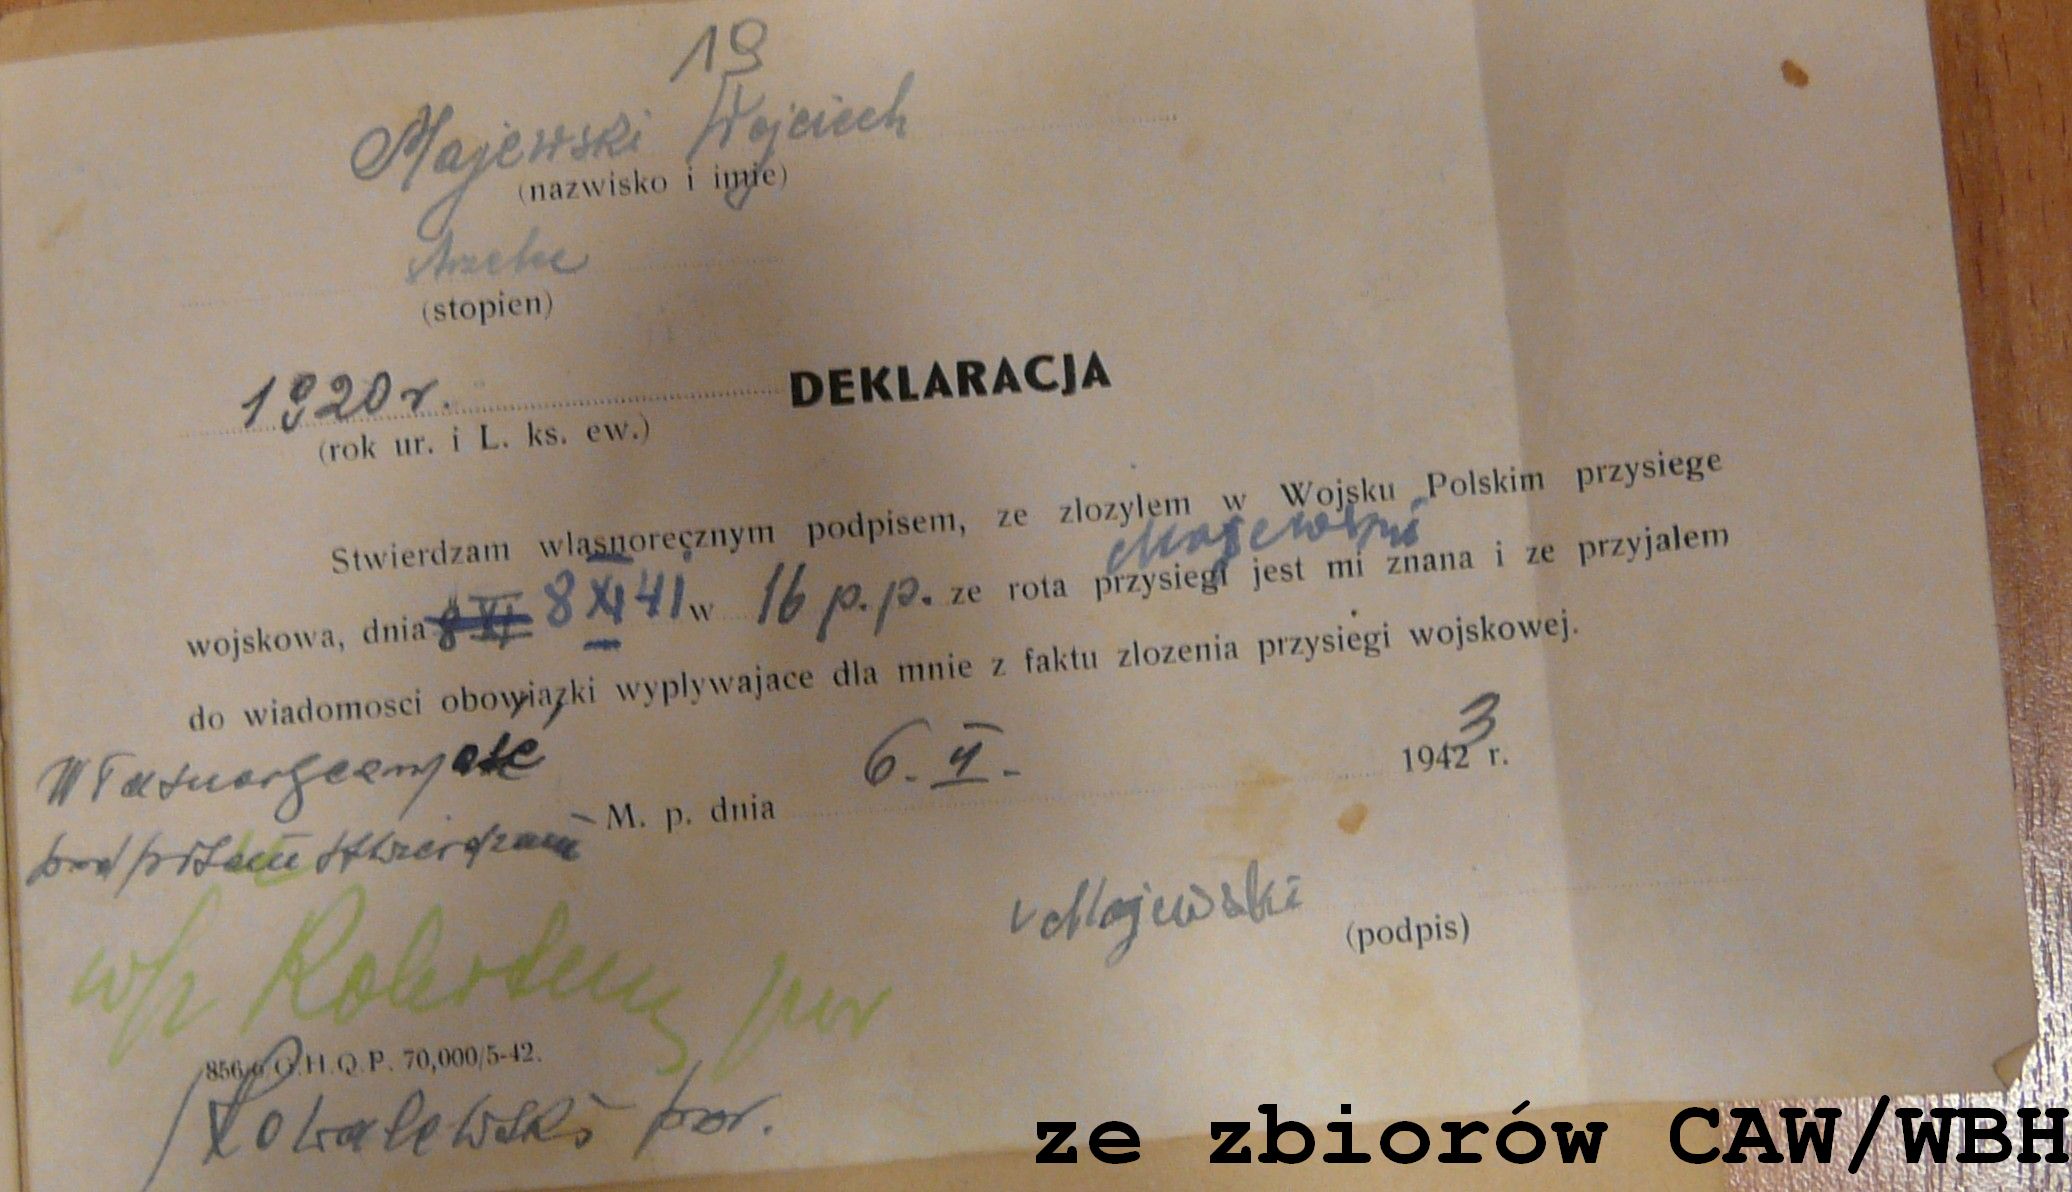 19
Majewski Wojciech
(nazwisko i imie)
strzelec
(stopien)
1920 r. DEKLARACJA
(rok ur. i L. ks. ew.)
Stwierdzam wlasnorecznym podpisem, ze zlozylem w Wojsku Polskim przysiege
Majewski
wojskowa, dnia 8 XI 8 XI 41 w 16 p.p. ze rota przysiegi jest mi znana i ze przyjalem
do wiadomosci obowiazki wyplywajace dla mnie z faktu zlozenia przysiegi wojskowej.
Własnoręczność
podpisem stwierdzam M. p. dnia 6. II. 1942 3 r.
Majewski
(podpis)
por
856/6 G.H.Q.P. 70,000/5-42.
Kowalewski por.
ze zbiorów CAW/WBH